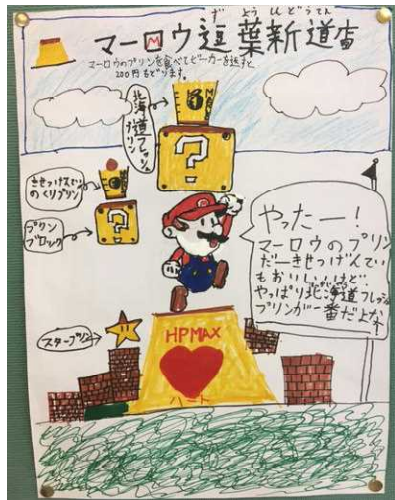 ず よう しんどうてん
マーロウ逗葉新道店
マーロウのプリンを食べてビーカーを返すと
200円もどります。
北海道フレッシュ
プリン
?
きせつげんてい
のくりプリン
プリン
ブロック
?
やったー!
マーロウのプリン
だーきせつげんてい
もおいしいけど…
やっぱり北海道フレッシュ
プリンが一番だよな
スタープリン
HPMAX
ハート